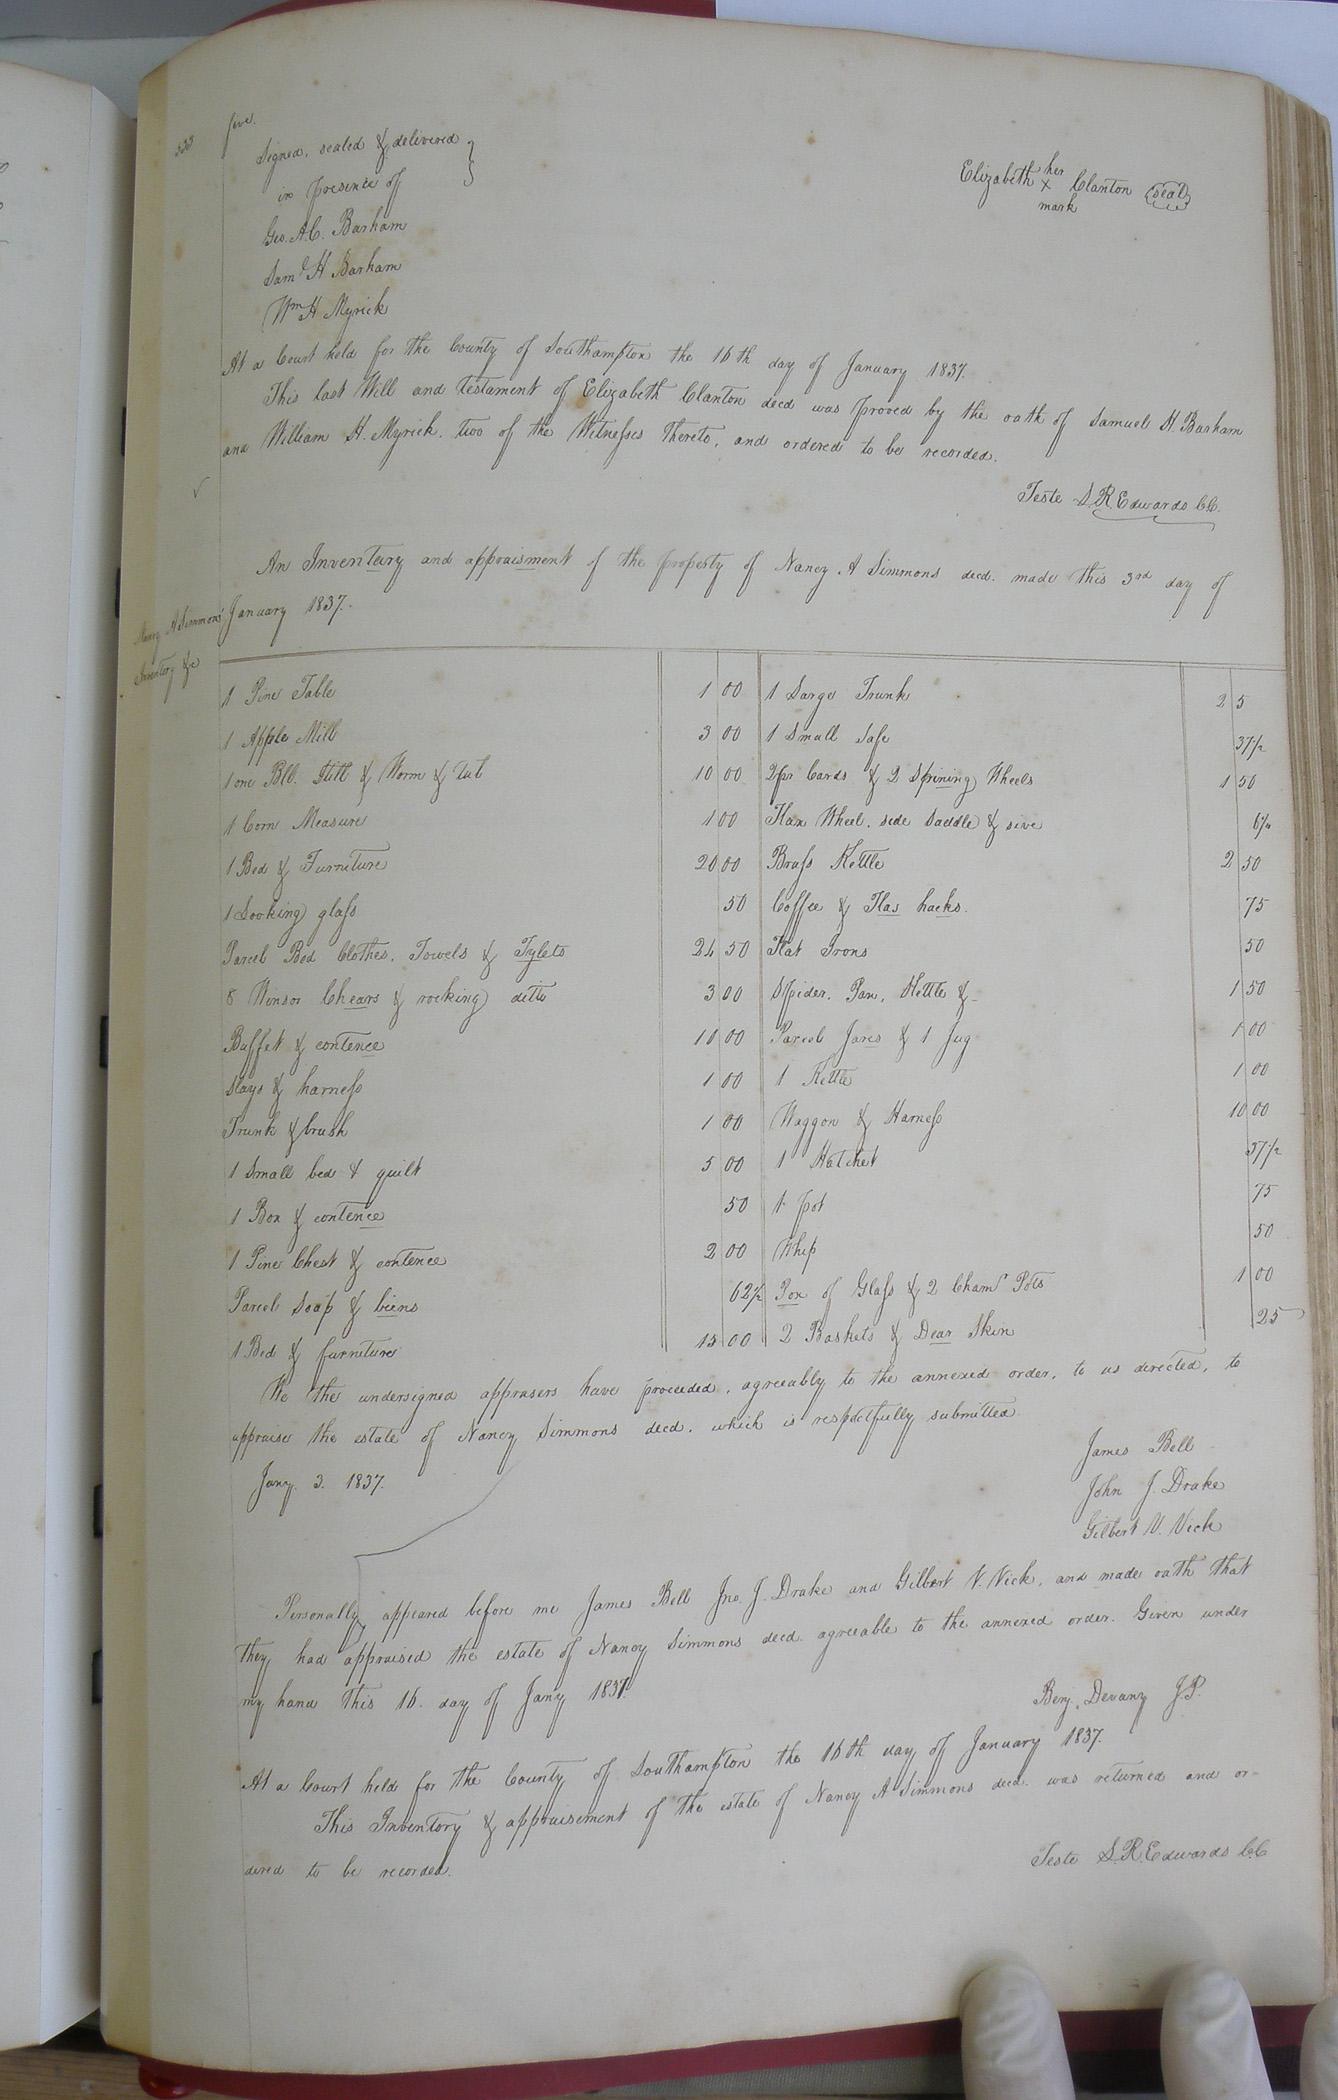 five.
Signed, sealed & delivered }
in presence of
Elizabeth her x mark Clanton (seal)
Geo. A.C. Barham
Saml H Barham
Wm H Myrick
At a Court held for the County of Southampton the 16th day of January 1837.
This last Will and testament of Elizabeth Clanton decd was proved by the oath of Samuel H. Barham
and William H. Myrick, two of the Witnesses thereto, and ordered to be recorded.
Teste S.R. Edwards CC.
An Inventary and appraisment of the property of Nancy A Simmons decd. made this 3rd day of
January 1837.
Nancy A Simmons'
Inventory &c
1 Pine Table 1 00
1 Apple Mill 3 00
1 one Bll. Still & Worm & Tub 10 00
1 Corn Measure 1 00
1 Bed & Furniture 20 00
1 Looking glass 50
Parcel Bed Clothes, Towels & Tylets 24 50
8 Winsor Chears & rocking ditto 3 00
Buffet & contence 10 00
Slays & harness 1 00
Trunk & brush 1 00
1 Small bed & quilt 5 00
1 Box & contence 50
1 Pine Chest & contence 2 00
Parcel Soap & biens 62½
1 Bed & furniture 15 00
1 Large Trunk 2 5
1 Small Safe 37½
2 pr Cards & 2 Spining Wheels 1 50
Flax Wheel, side Saddle & sive 6¼
Brass Kettle 2 50
Coffee & Flas hacks. 75
Flat Irons 50
Spider, Pan, Kettle &- 1 50
Parcel Jares & 1 Jug 1 00
1 Kettle 1 00
Waggon & Harness 10 00
1 Hatchet 37½
1 pot 75
Whip 50
Pox of Glass & 2 Chamr Pots 1 00
2 Baskets & Dear Skin 25
We the undersigned apprasers have proceeded, agreeably to the annexed order, to us directed, to
appraise the estate of Nancy Simmons decd. which is respectfully submitted.
Jany. 3. 1837.
James Bell
John J. Drake
Gilbert V. Vick
Personally appeared before me James Bell Jno. J. Drake and Gilbert V. Vick, and made oath that
they had appraised the estate of Nancy Simmons decd. agreeable to the annexed order. Given under
my hand this 16. day of Jany 1837.
Benj. Devany J.P.
At a Court held for the County of Southampton the 16th day of January 1837.
This Inventory & appraisement of the estate of Nancy A Simmons decd. was returned and or-
dered to be recorded.
Teste S.R. Edwards C.C